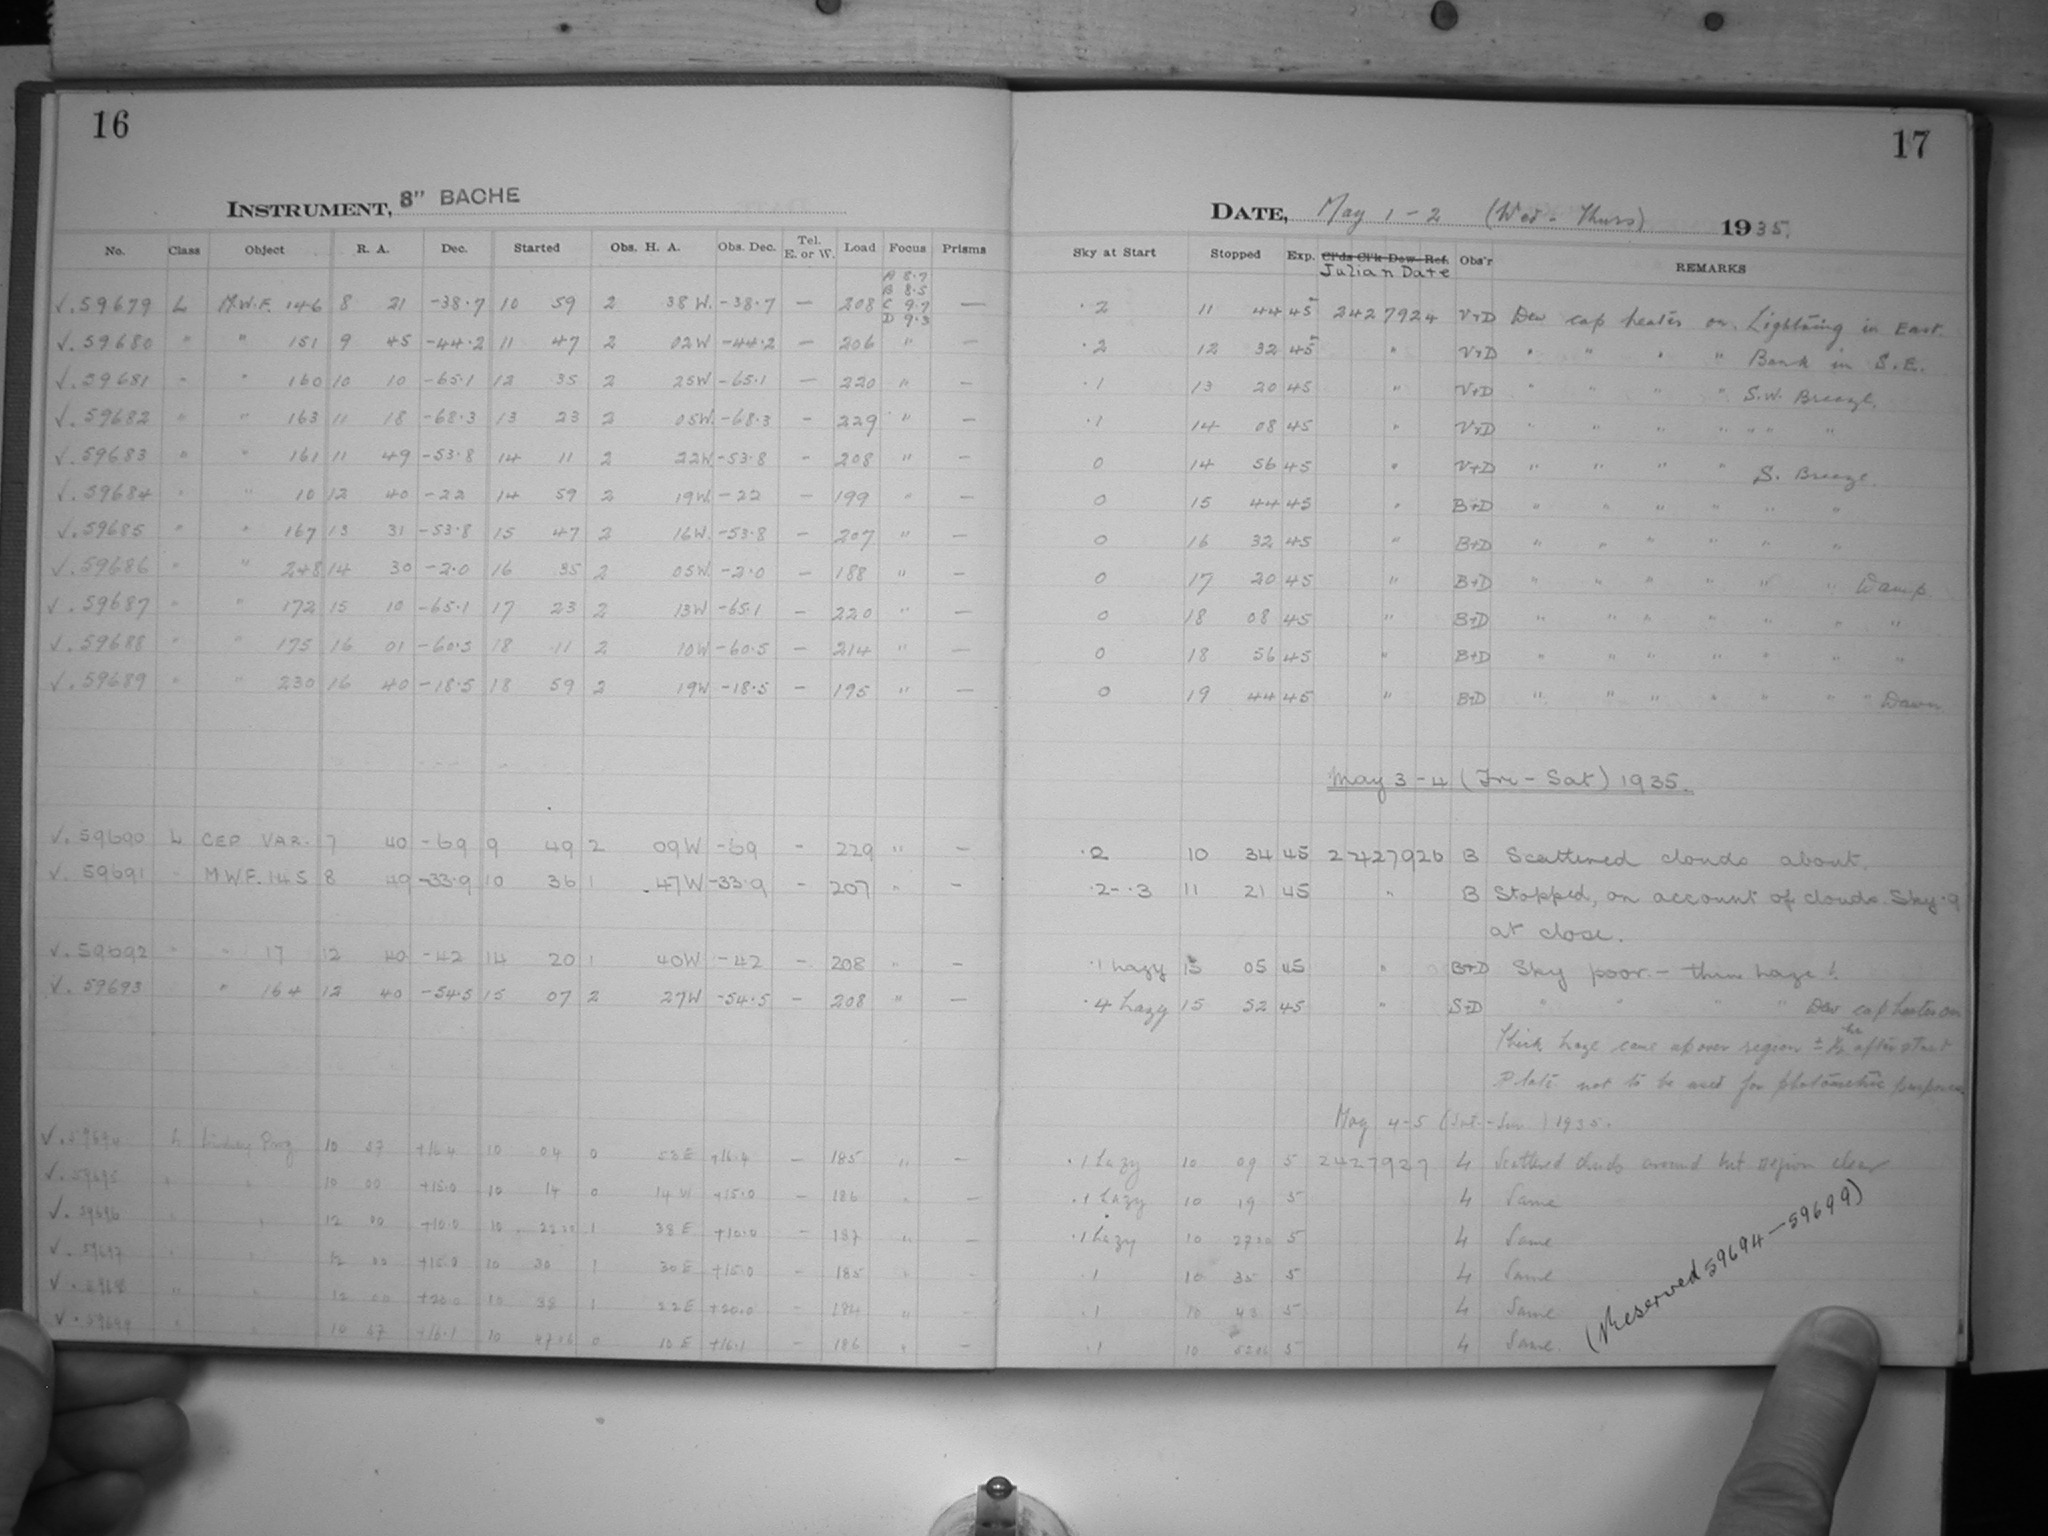 16
INSTRUMENT, 8" BACHE
No. Class Object R. A. Dec. Started Obs. H. A. Obs. Dec. Tel. E. or W. Load Focus Prisms
A 8.7
B 8.5
√.59679 L M.W.F. 146 8 21 -38.7 10 59 2 38 W. -38.7 — 208 C 9.7 —
D 9.3
√.59680 " " 151 9 45 -44.2 11 47 2 02W -44.2 — 206 " —
√.59681 " " 160 10 10 -65.1 12 35 2 25W -65.1 — 220 " —
√.59682 " " 163 11 18 -68.3 13 23 2 05W. -68.3 — 229 " —
√.59683 " " 161 11 49 -53.8 14 11 2 22W -53.8 - 208 " —
√.59684 " " 10 12 40 -22 14 59 2 19W -22 — 199 " —
√.59685 " " 167 13 31 -53.8 15 47 2 16W. -53.8 — 207 " —
√.59686 " " 248 14 30 -2.0 16 35 2 05W. -2.0 — 188 " —
√.59687 " " 172 15 10 -65.1 17 23 2 13W -65.1 — 220 " —
√.59688 " " 175 16 01 -60.5 18 11 2 10W -60.5 — 214 " —
√.59689 " " 230 16 40 -18.5 18 59 2 19W -18.5 — 195 " —
√.59690 L CEP VAR. 7 40 -69 9 49 2 09W -69 - 229 " —
√. 59691 " M.W.F. 145 8 49 -33.9 10 36 1 47W -33.9 - 207 " —
√.59692 " " 17 12 40 -42 14 20 1 40W -42 - 208 " —
√. 59693 " 164 12 40 -54.5 15 07 2 27W -54.5 — 208 " —
√.59694 L Lindsay Prog 10 57 +16.4 10 04 0 53E +16.4 — 185 " —
√. 59695 " " 10 00 +15.0 10 14 0 14 W +15.0 — 186 " —
√. 59696 " " 12 00 +10.0 10 1 38 E +10.0 — 187 " —
√. 59697 " " 12 00 +15.0 10 30 1 30E +15.0 - 185 " —
√. " " 12 00 +20.0 10 38 1 22E +20.0 — 184 " —
√.59699 " " 10 57 +16.1 10 0 10 E +16.1 — 186 " —
17
DATE, May 1-2 (Wed - Thurs) 1935.
Sky at Start Stopped Exp. Cl'ds Cl'k Dew Ref. Obs'r REMARKS
Julian Date
.2 11 44 45 2427924 V+D Dew cap heater on. Lightning in East.
.2 12 32 45 " V+D " " " " Bank in S.E.
.1 13 20 45 " V+D " " " " S.W. Breeze.
.1 14 08 45 " V+D " " " " " " "
0 14 56 45 " V+D " " " " S. Breeze.
0 15 44 45 " B+D " " " " " "
0 16 32 45 " B+D " " " " " "
0 17 20 45 " B+D " " " " " " Damp
0 18 08 45 " B+D " " " " " " "
0 18 56 45 " B+D " " " " " " "
0 19 44 45 " B+D " " " " " " " Dawn
May 3-4 (Fri - Sat) 1935.
.2 10 34 45 2427926 B Scattered clouds about.
.2-.3 11 21 45 " B Stopped, on account of clouds. Sky .9
at close.
.1 hazy 15 05 45 " B+D Sky poor - thin haze!
.4 hazy 15 52 45 " S+D " " " " Dew cap heater on
Thick haze came up over region ± ½ hr after start
Plate not to be used for photometric purposes
May 4-5 (Sat.-Sun) 1935.
.1 hazy 10 09 5 2427927 L Scattered clouds around but region clear
.1 hazy 10 19 5 L Same
.1 hazy 10 5 L Same
.1 10 35 5 L Same
.1 10 43 5 L Same
.1 10 5 L Same.
(Reserved 59694—59699)